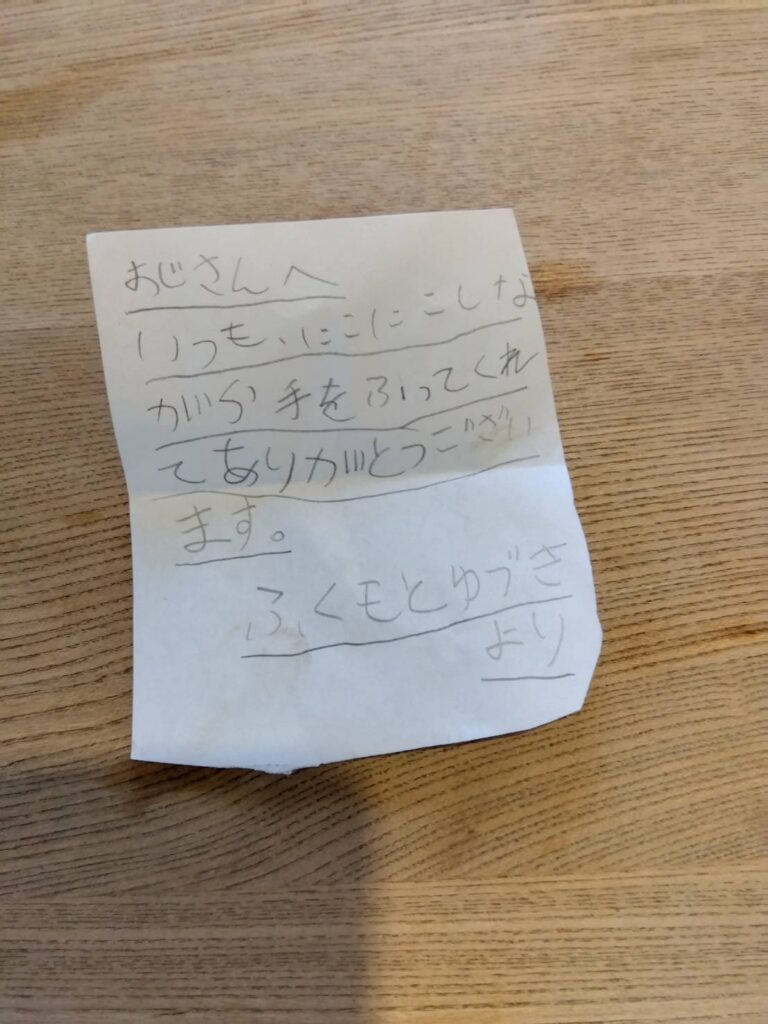 おじさんへ
いつも、にこにこしな
がら手をふってくれ
てありがとうござい
ます。
ふくもとゆづき
より